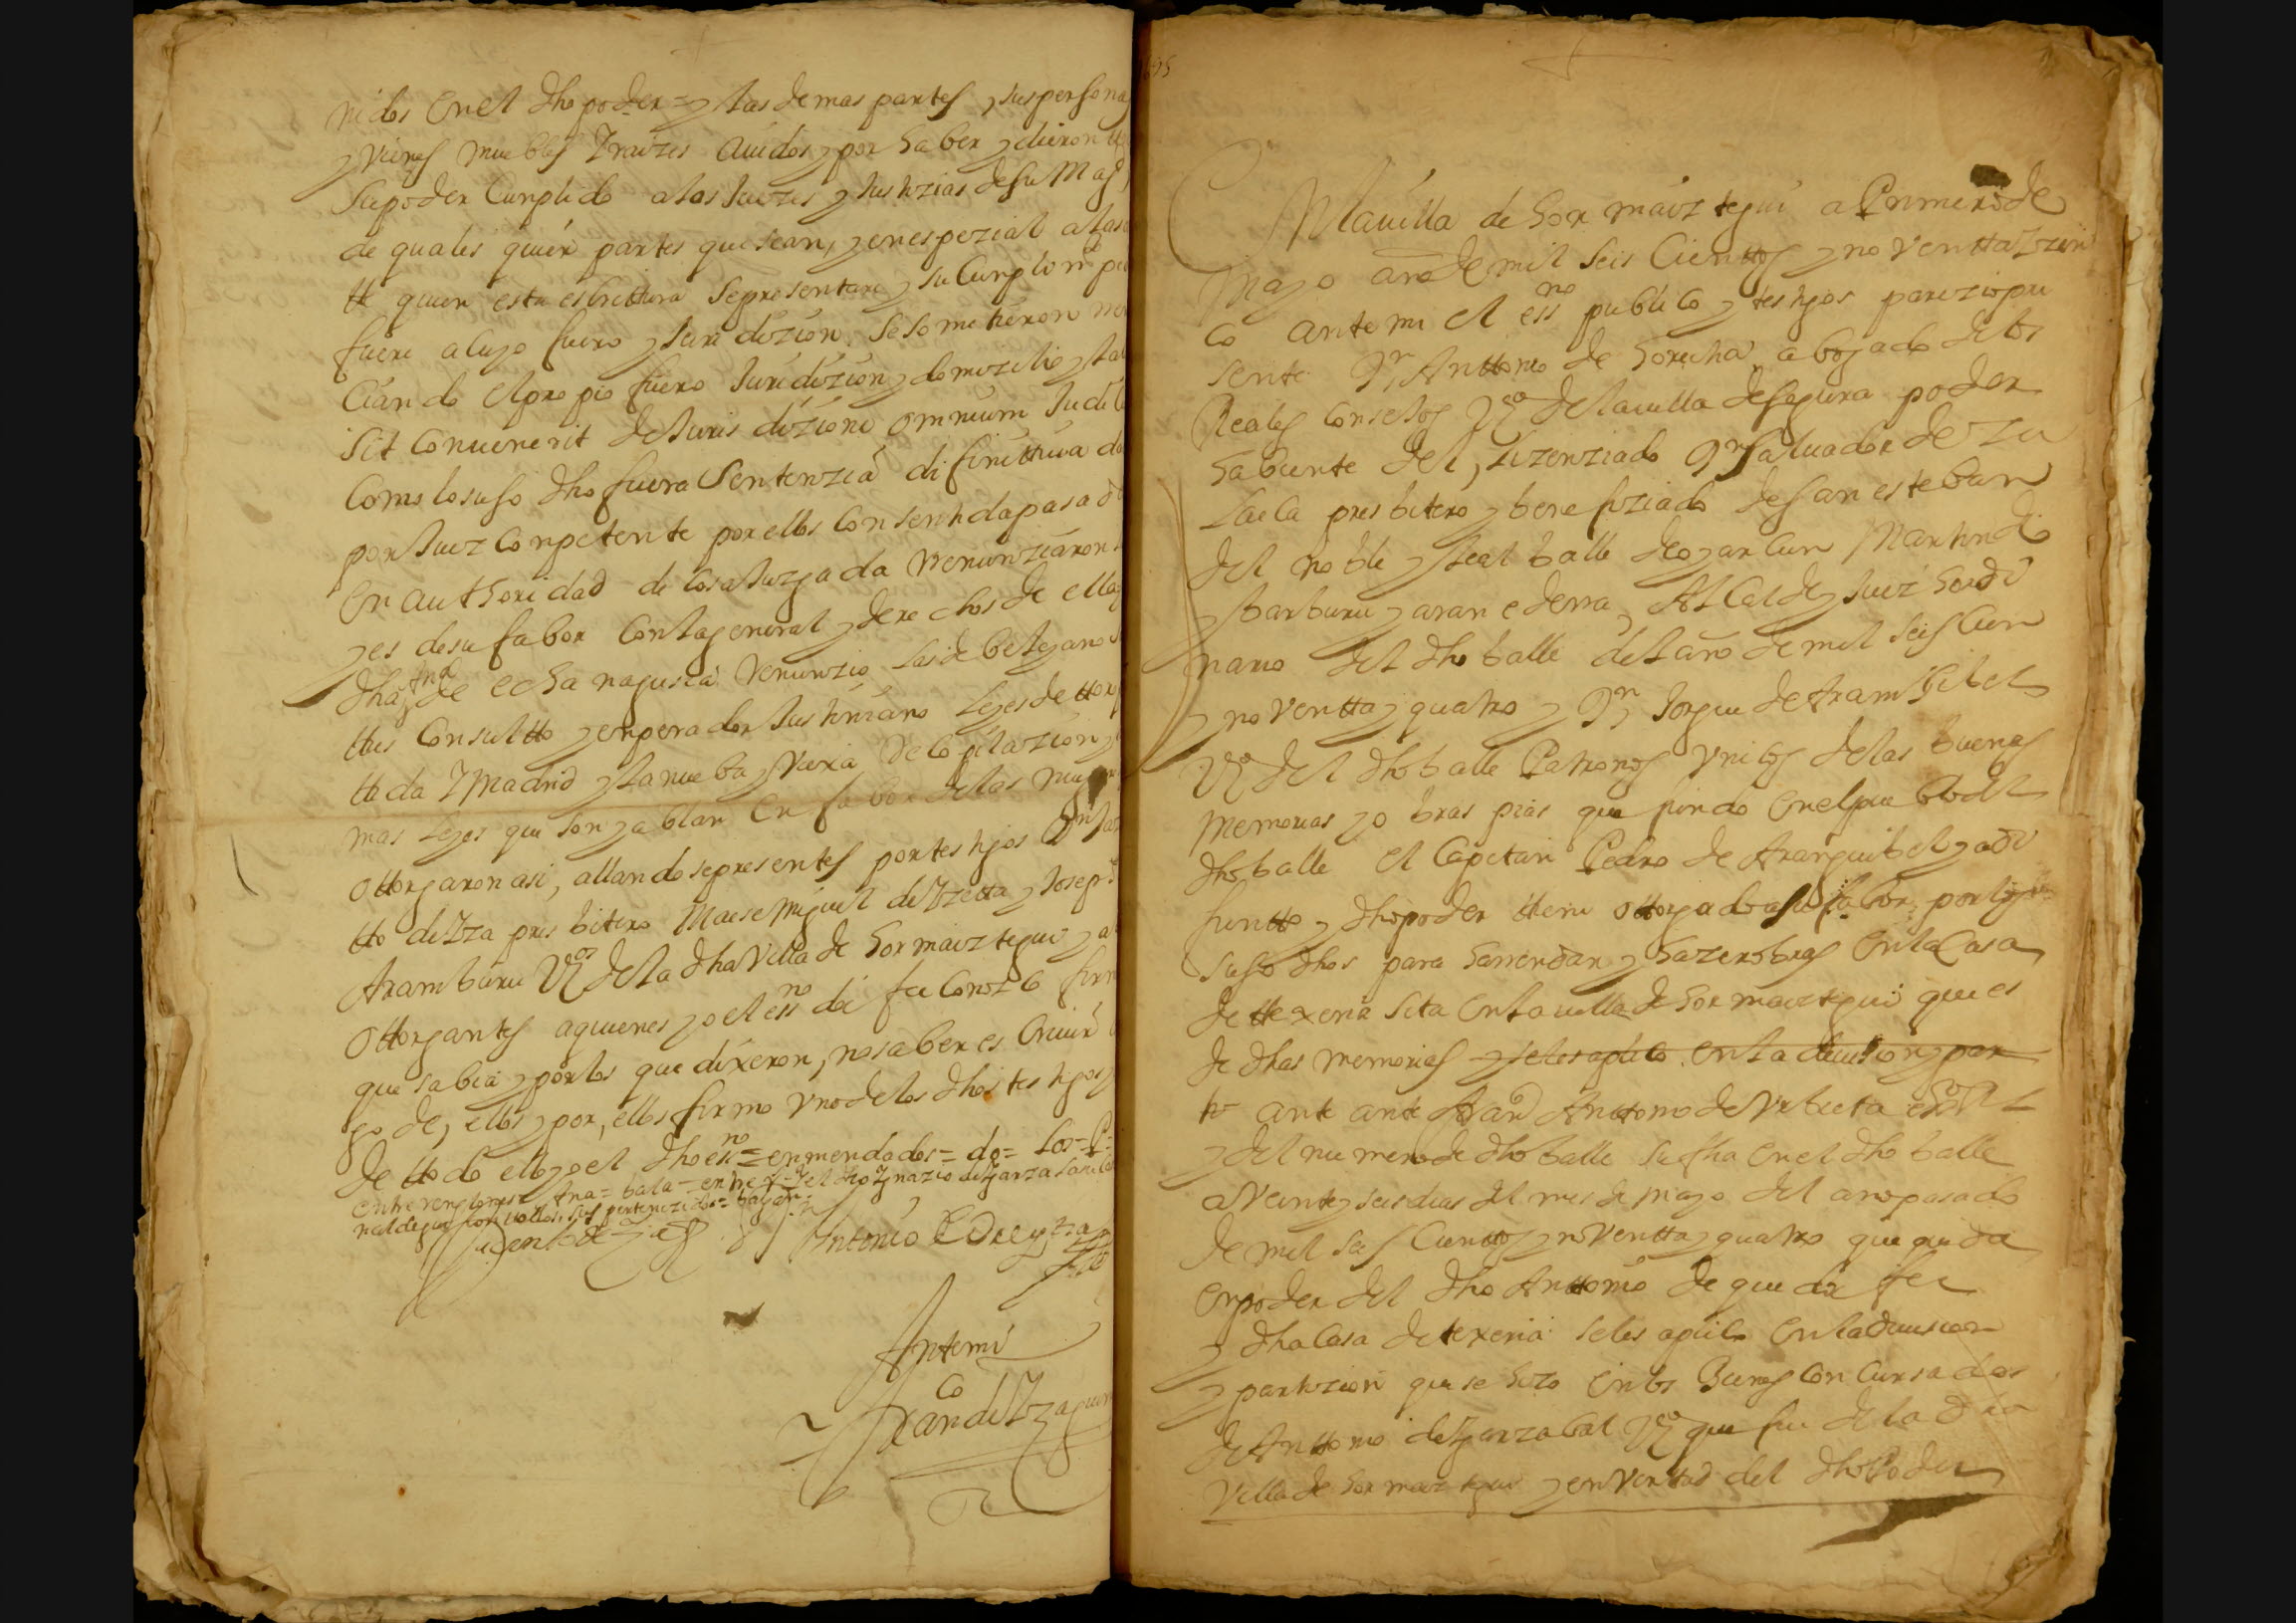 nidos en el dho poder = y las demas partes, sus personas
y vienes muebles y raizes auidos y por haber y dieron
su poder cunplido a los Juezes y Justizias de su Mag
de quales quier partes que sean, y en espezial a las
tte quien esta escrittura se presentare y su cunplim
fuere a cuyo fuero y Juridizion se sometieron
ciando el propio fuero Juridizion y domizilio y la
sit conuenerit de Jurisdizione omnium Judi
como lo suso dho fuera sentenzia difinittiua
por Juez conpetente por ellos consentida pasada
en authoridad de cosa Juzgada renunziaron
yes de su fabor con la general y derechos de ella
dha Ana de echanagusia renunzio las de beleyano
ttus consultto y enperador Justiniano leyes de ttor
tida y Madrid y la nueba y viexa recopilazion
mas leyes que son y ablan en fabor de las mug
ottorgaron asi, allandose presentes por testigos Dn
tto de Yza presbitero Maese Miguel de Yzetta y Josep
Aramburu vzos de la dha villa de hormaiztegui y a
ottorgantes a quienes yo el essno doi fee conozco firm
que sabia y por los que dixeron, no saber escriuir
go de, ellos y por, ellos firmo vno de los dhos testigos
de ttodo ello yo el dho essno = enmendados = do = los =
entre renglones = Ana = bala = entre = del dho Ygnazio de Ygarza
Antonio
Ante mi
Franco de Yzaguirre
En la uilla de hormaiztegui a Primero de
Mayo año de mil seis cienttos y noventta y zin
co ante mi el essno publico y testigos parezio pre
sente Dn Anttonio de horucha abogado de los
Reales consexos vzo de la uilla de segura poder
habiente del, Lizenziado Dn saluador de Zu
laica presbitero y benefiziado de san esteban
del noble y leal balle de oyarcun Martin de
ybarburu y aranederra, Alcalde y Juez hordi
nario del dho balle del año de mil seis cien
y noventta y quatro y Dn Jorgue de Aramgibel
vzo del dho balle Patronos vnicos de las buenas
memorias y o bras pias que fundo en el pueblo del
dho balle el Capitan Pedro de Aranguibel ya di
funtto y dho poder ttiene ottorgado a su fabor, por los
suso dhos para harrendar y hazer obras en la casa
de ttexeria sita en la uilla de hormaiztegui que es
de dhas memorias y se les aplico en la diuision y par
tn ante ante Juan Anttonio de vrbieta essno R l
y del numero de dho balle su fha en el dho balle
a veinte y seis dias del mes de mayo del año pasado
de mil seis cienttos y noventta y quatro que queda
en poder del dho Anttonio de que doi fee
y dha casa de texeria se les aplico en la diuision
y partizion que se hizo en los bienes concursados
de Anttonio de Ygarzabal vzo que fue de la dha
villa de hormaiztegui y en virtud del dho Poder